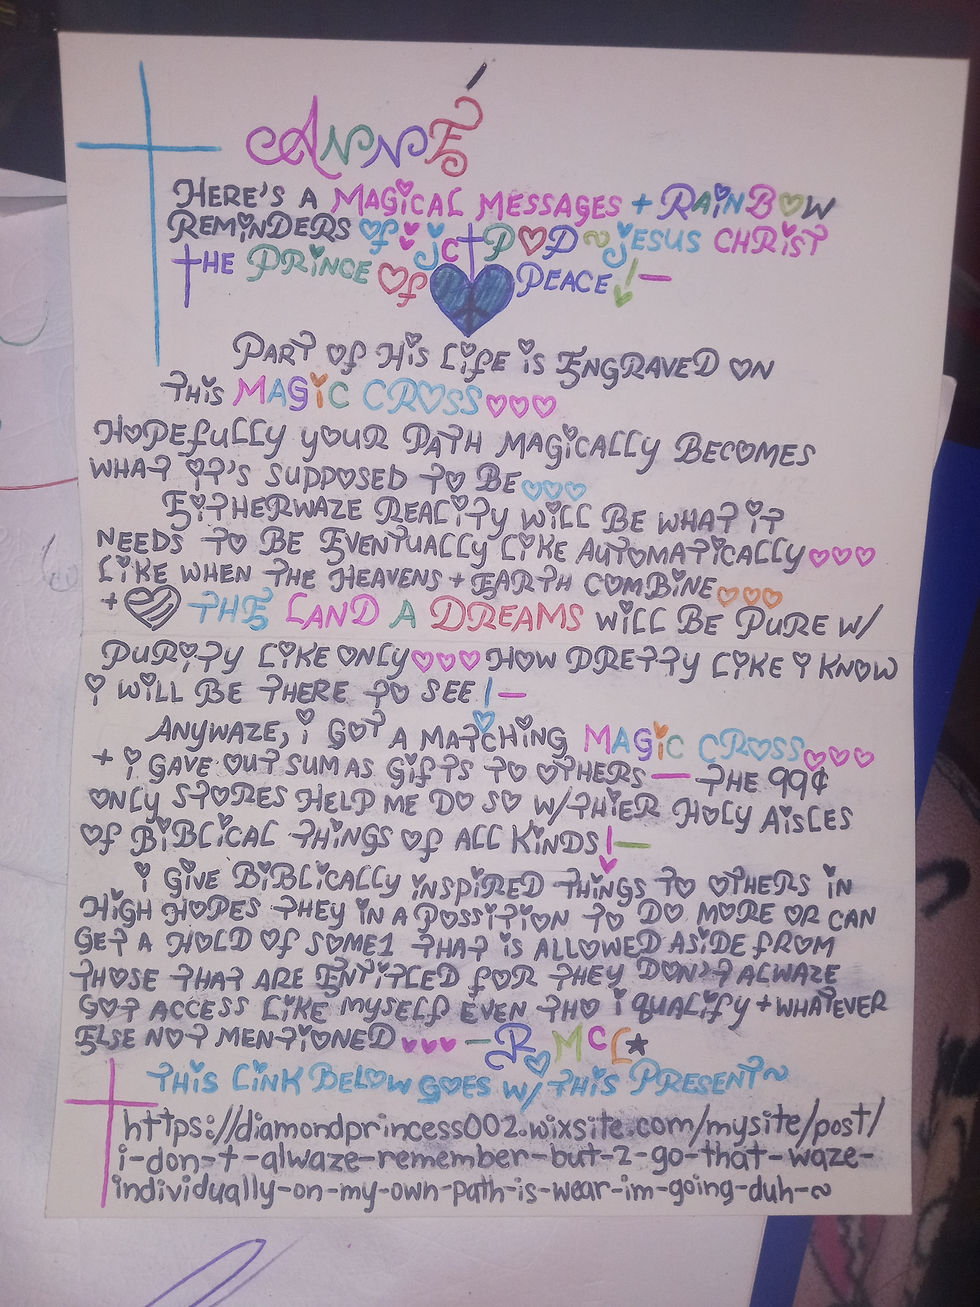 ANNÉ
HERE'S A MAGICAL MESSAGES + RAINBOW
REMINDERS Of jc+POD~jESUS CHRiST
tHE PRiNCE Of PEACE!—
PART Of HiS LifE iS ENGRAVED ON
THiS MAGiC CROSS♡♡♡
HOPEfULLY yOUR PATH MAGiCALLY BECOMES
WHAT iT'S SUPPOSED TO BE♡♡♡
EiTHERWAZE REALiTY WiLL BE WHAT iT
NEEDS TO BE EVENTUALLY LiKE AUTOMATiCALLY♡♡♡
LiKE WHEN THE HEAVENS + EARTH COMBiNE♡♡♡
+ ♡ THE LAND A DREAMS WiLL BE PURE W/
PURiTY LiKE ONLY♡♡♡HOW PRETTY LiKE i KNOW
i WiLL BE THERE TO SEE!—
ANYWAZE, i GOT A MATCHiNG MAGiC CROSS♡♡♡
+ i GAVE OUT SUM AS GifTS TO OTHERS — THE 99¢
ONLY STORES HELP ME DO SO W/THiER HOLY AiSLES
Of BiBLiCAL THiNGS Of ALL KiNDS!—
i GiVE BiBLiCALLY iNSPiRED THiNGS TO OTHERS iN
HiGH HOPES THEY iN A POSSiTiON TO DO MORE OR CAN
GET A HOLD Of SOME1 THAT iS ALLOWED ASiDE fROM
THOSE THAT ARE ENTiTLED fOR THEY DON'T ALWAZE
GOT ACCESS LiKE MYSELf EVEN THO i QUALifY + WHATEVER
ELSE NOT MENTiONED♥♥♥ —R McL★
THiS LiNK BELOW GOES W/ THiS PRESENT~
https://diamondprincess002.wixsite.com/mysite/post/
i-don-t-alwaze-remember-but-2-go-that-waze-
individually-on-my-own-path-is-wear-im-going-duh-~